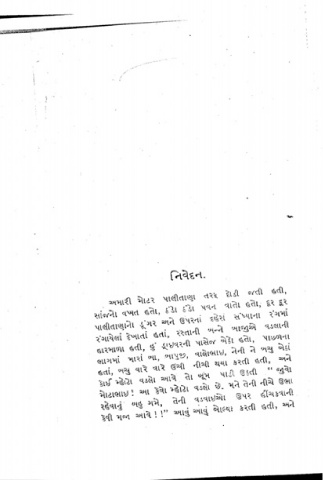 નિવેદન.
અમારી મોટર પાલીતાણા તરફ દોડી જતી હતી,
સાંજનો વખત હતો, ઠંડો ઠંડો પવન વાતો હતો, દૂર દૂર
પાલીતાણાનો ડુંગર અને ઉપરનાં દહેરાં સંધ્યાના રંગમાં
રંગાયેલાં દેખાતાં હતાં, રસ્તાની બન્ને બાજુએ વડલાની
હારમાળા હતી, હું ડ્રાઇવરની પાસેજ બેઠો હતો, પાછળના
ભાગમાં મારાં બા, બાપુજી, વાલોભાઇ, નેની ને બચુ બેઠાં
હતાં, બચુ વારે વારે ઉંચી નીચી થયા કરતી હતી, અને
કોઈ મ્હોટો વડલો આવે તો બૂમ પાડી ઉઠતી " જુવો
મોટાભાઇ! આ કેવો મ્હોટો વડલો છે. મને તેની નીચે ઉભા
રહેવાનું બહુ ગમે, તેની વડવાઇઓ ઉપર હીંચકવાની
કેવી મજા આવે!!" આવું આવું બોલ્યા કરતી હતી, અને